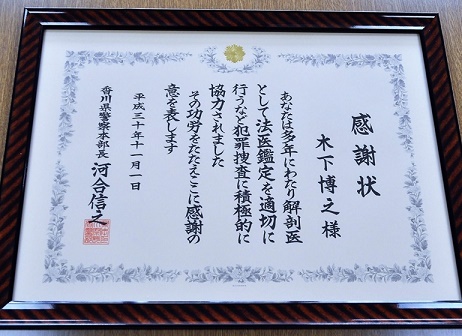 感謝状
木下博之様
あなたは多年にわたり解剖医
として法医鑑定を適切に
行うなど犯罪捜査に積極的に
協力されました
その功労をたたえここに感謝の
意を表します
平成三十年十一月一日
香川県警察本部長 河合信之